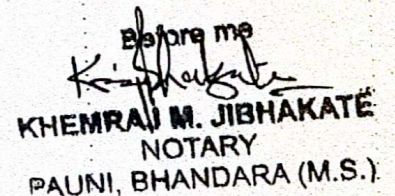 Before me
KHEMRAJ M. JIBHAKATE
NOTARY
PAUNI, BHANDARA (M.S.)